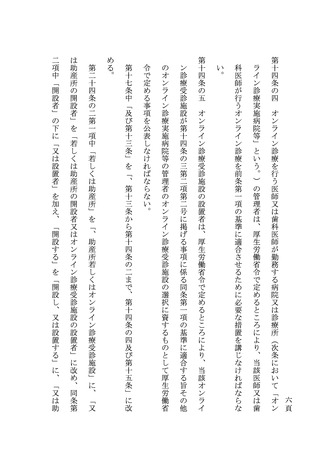 六頁
第十四条の四　オンライン診療を行う医師又は歯科医師が勤務する病院又は診療所（次条において「オン
ライン診療実施病院等」という。）の管理者は、厚生労働省令で定めるところにより、当該医師又は歯
科医師が行うオンライン診療を前条第一項の基準に適合させるために必要な措置を講じなければならな
い。
第十四条の五　オンライン診療受診施設の設置者は、厚生労働省令で定めるところにより、当該オンライ
ン診療受診施設が第十四条の三第二項第二号に掲げる事項に係る同条第一項の基準に適合する旨その他
のオンライン診療実施病院等の管理者のオンライン診療受診施設の選択に資するものとして厚生労働省
令で定める事項を公表しなければならない。
第十七条中「及び第十三条」を「、第十三条から第十四条の二まで、第十四条の四及び第十五条」に改
める。
第二十四条の二第一項中「若しくは助産所」を「、助産所若しくはオンライン診療受診施設」に、「又
は助産所の開設者」を「若しくは助産所の開設者又はオンライン診療受診施設の設置者」に改め、同条第
二項中「開設者」の下に「又は設置者」を加え、「開設する」を「開設し、又は設置する」に、「又は助